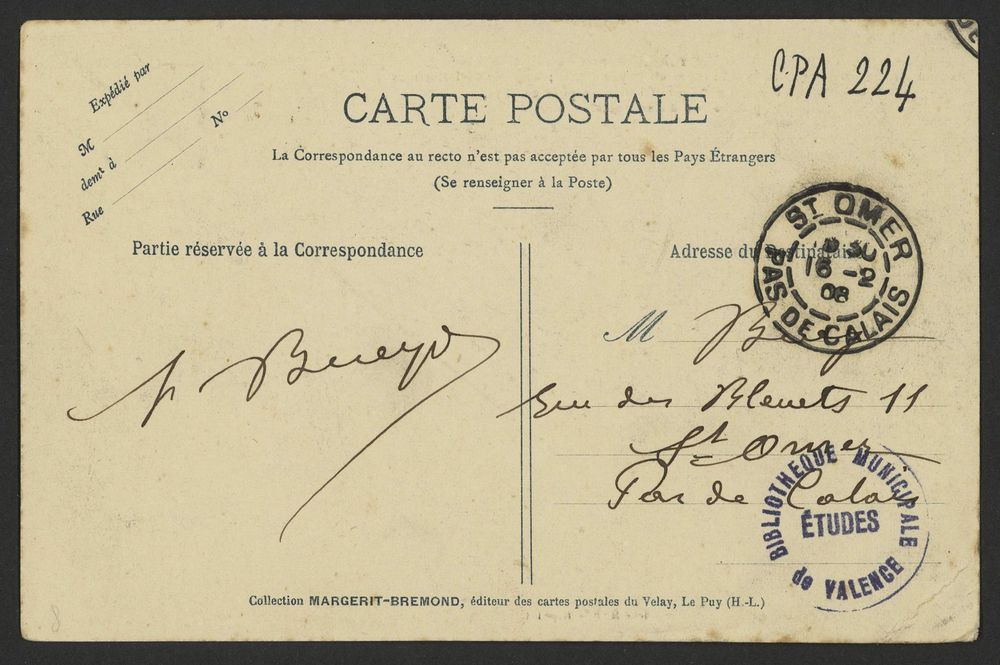 CPA 224
Expédié par
M
demt à No
Rue
CARTE POSTALE
La Correspondance au recto n'est pas acceptée par tous les Pays Étrangers
(Se renseigner à la Poste)
Partie réservée à la Correspondance
Adresse du Destinataire
ST OMER
16 - 2
08
PAS DE CALAIS
M
des Bleuets 11
St Omer
Pas de Calais
BIBLIOTHEQUE MUNICIPALE
ÉTUDES
de VALENCE
Collection MARGERIT-BREMOND, éditeur des cartes postales du Velay, Le Puy (H.-L.)